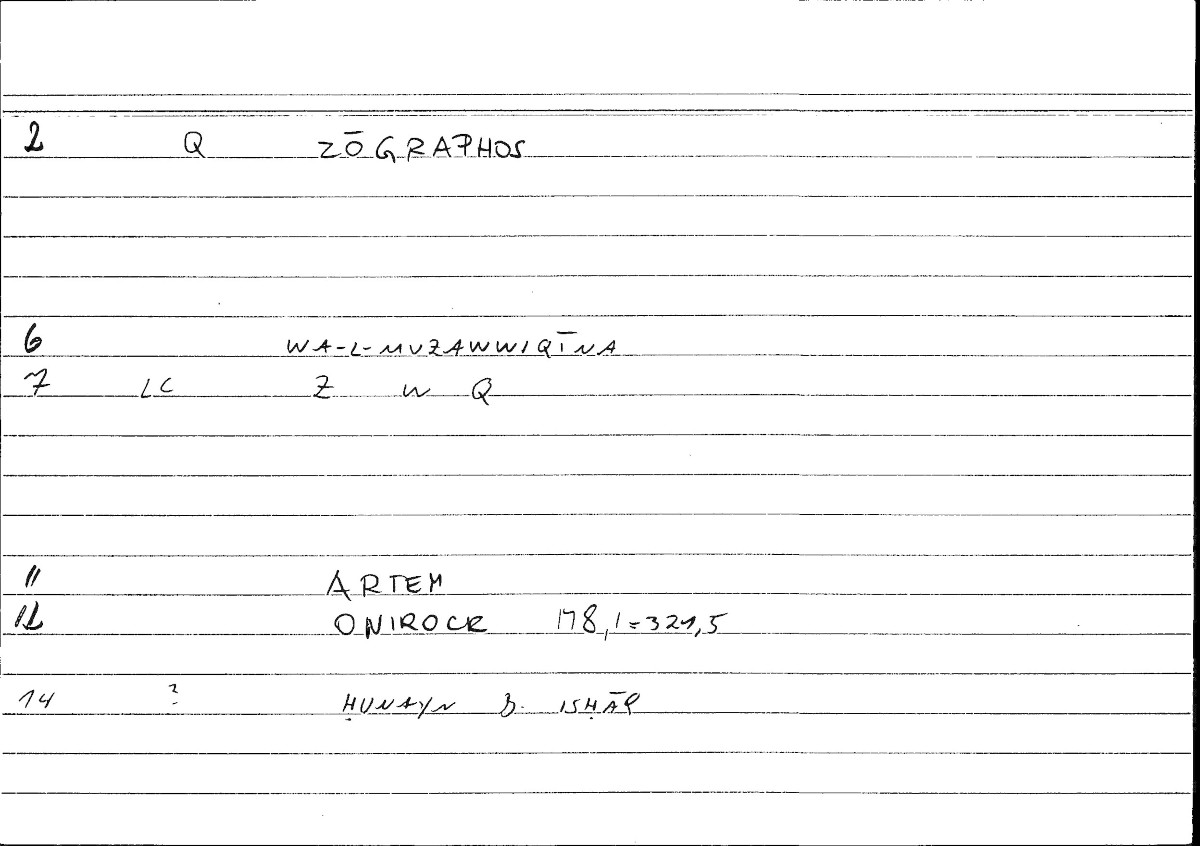 2 Q ZŌGRAPHOS
6 WA-L-MUZAWWIQĪNA
7 LC Z W Q
11 ARTEM
12 ONIROCR 178,1=321,5
14 ? ḤUNAYN B. ISḤĀQ